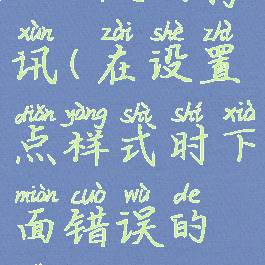 xùn zài shè zhì
讯(在设置
diǎn yàng shì shí xià
点样式时下
miàn cuò wù de
面错误的